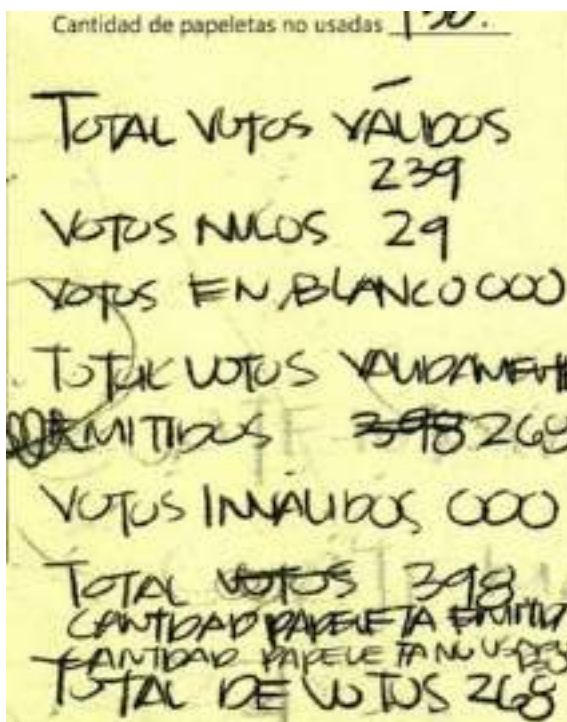 Cantidad de papeletas no usadas 130.
TOTAL VOTOS VÁLIDOS
239
VOTOS NULOS 29
VOTOS EN BLANCO 000
TOTAL VOTOS VALIDAMENTE
EMITIDOS 398 268
VOTOS INVALIDOS 000
TOTAL VOTOS 398
CANTIDAD PAPELETA EMITID
CANTIDAD PAPELETA NO USADAS
TOTAL DE VOTOS 268